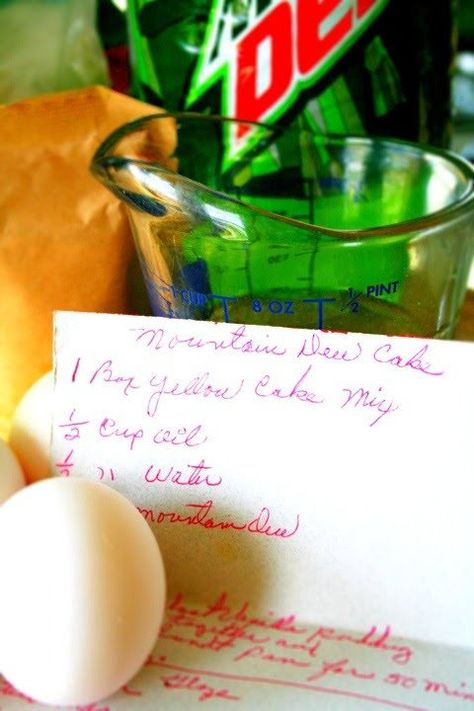 DEW
1 CUP
8 OZ
1/2 PINT
Mountain Dew Cake
1 Box Yellow Cake Mix
1/2 Cup Oil
1/2 " Water
Mountain Dew
pudding
together and
Pan for 50 min
Glaze